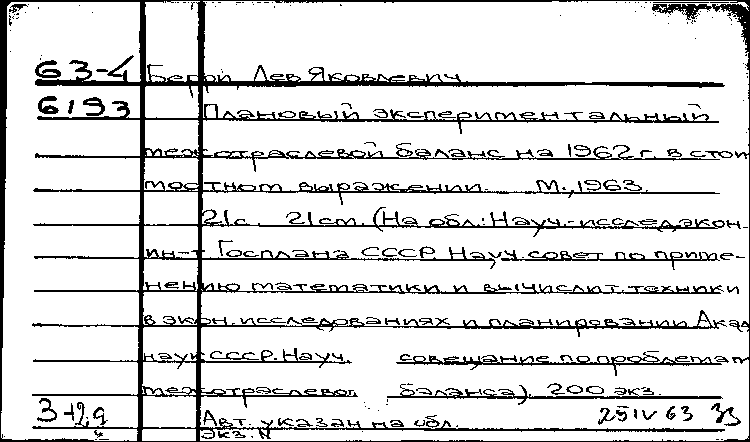 63-4 Берри, Лев Яковлевич.
6193 Плановый экспериментальный
межотраслевой баланс на 1962 г. в стои
мостном выражении. М., 1963.
21 с. 21 см. (На обл.: Науч.-исслед. экон.
ин-т Госплана СССР. Науч. совет по приме-
нению математики и вычислит. техники
в экон. исследованиях и планировании Акад
наук СССР. Науч. совещание по проблемам
межотраслевог баланса). 200 экз.
3-12 Авт. указан на обл. 25 IV 63
Экз. N